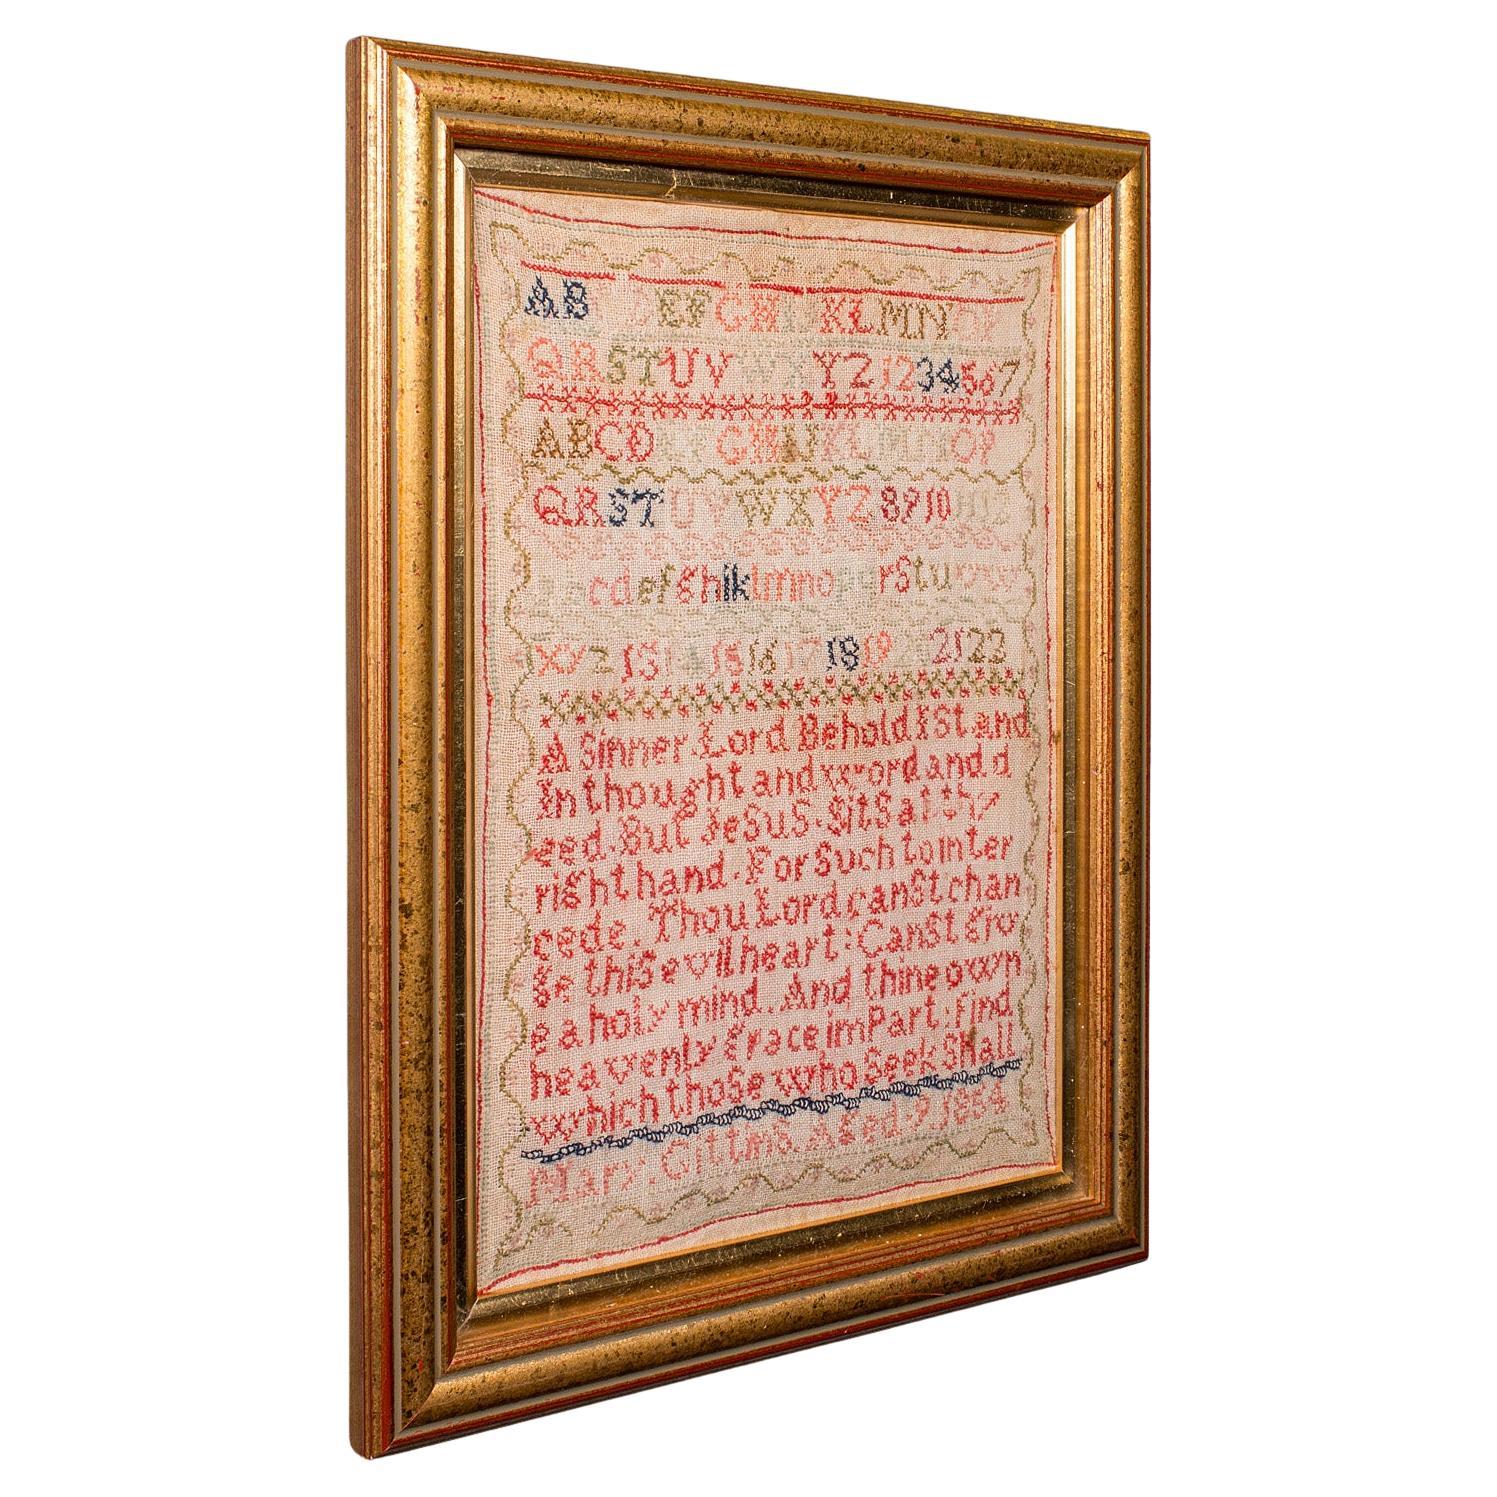 AB DEFGHIJKLMNOP
QRSTUVWXYZ1234567
ABCDEFGHIJKLMNOP
QRSTUVWXYZ89101112
abcdefghiklmnopqrstuvw
xyz131415161718192122
A Sinner.Lord Behold I Stand
In thought and word and d
eed.But JeSuS.SitS at thy
right hand.For Such to inter
cede.Thou Lord canSt chan
ge thiS evil heart:CanSt giv
e a holy mind.And thine own
heavenly grace impart:find
which thoSe who Seek Shall
Mary:Gittins.Aged.9.1854